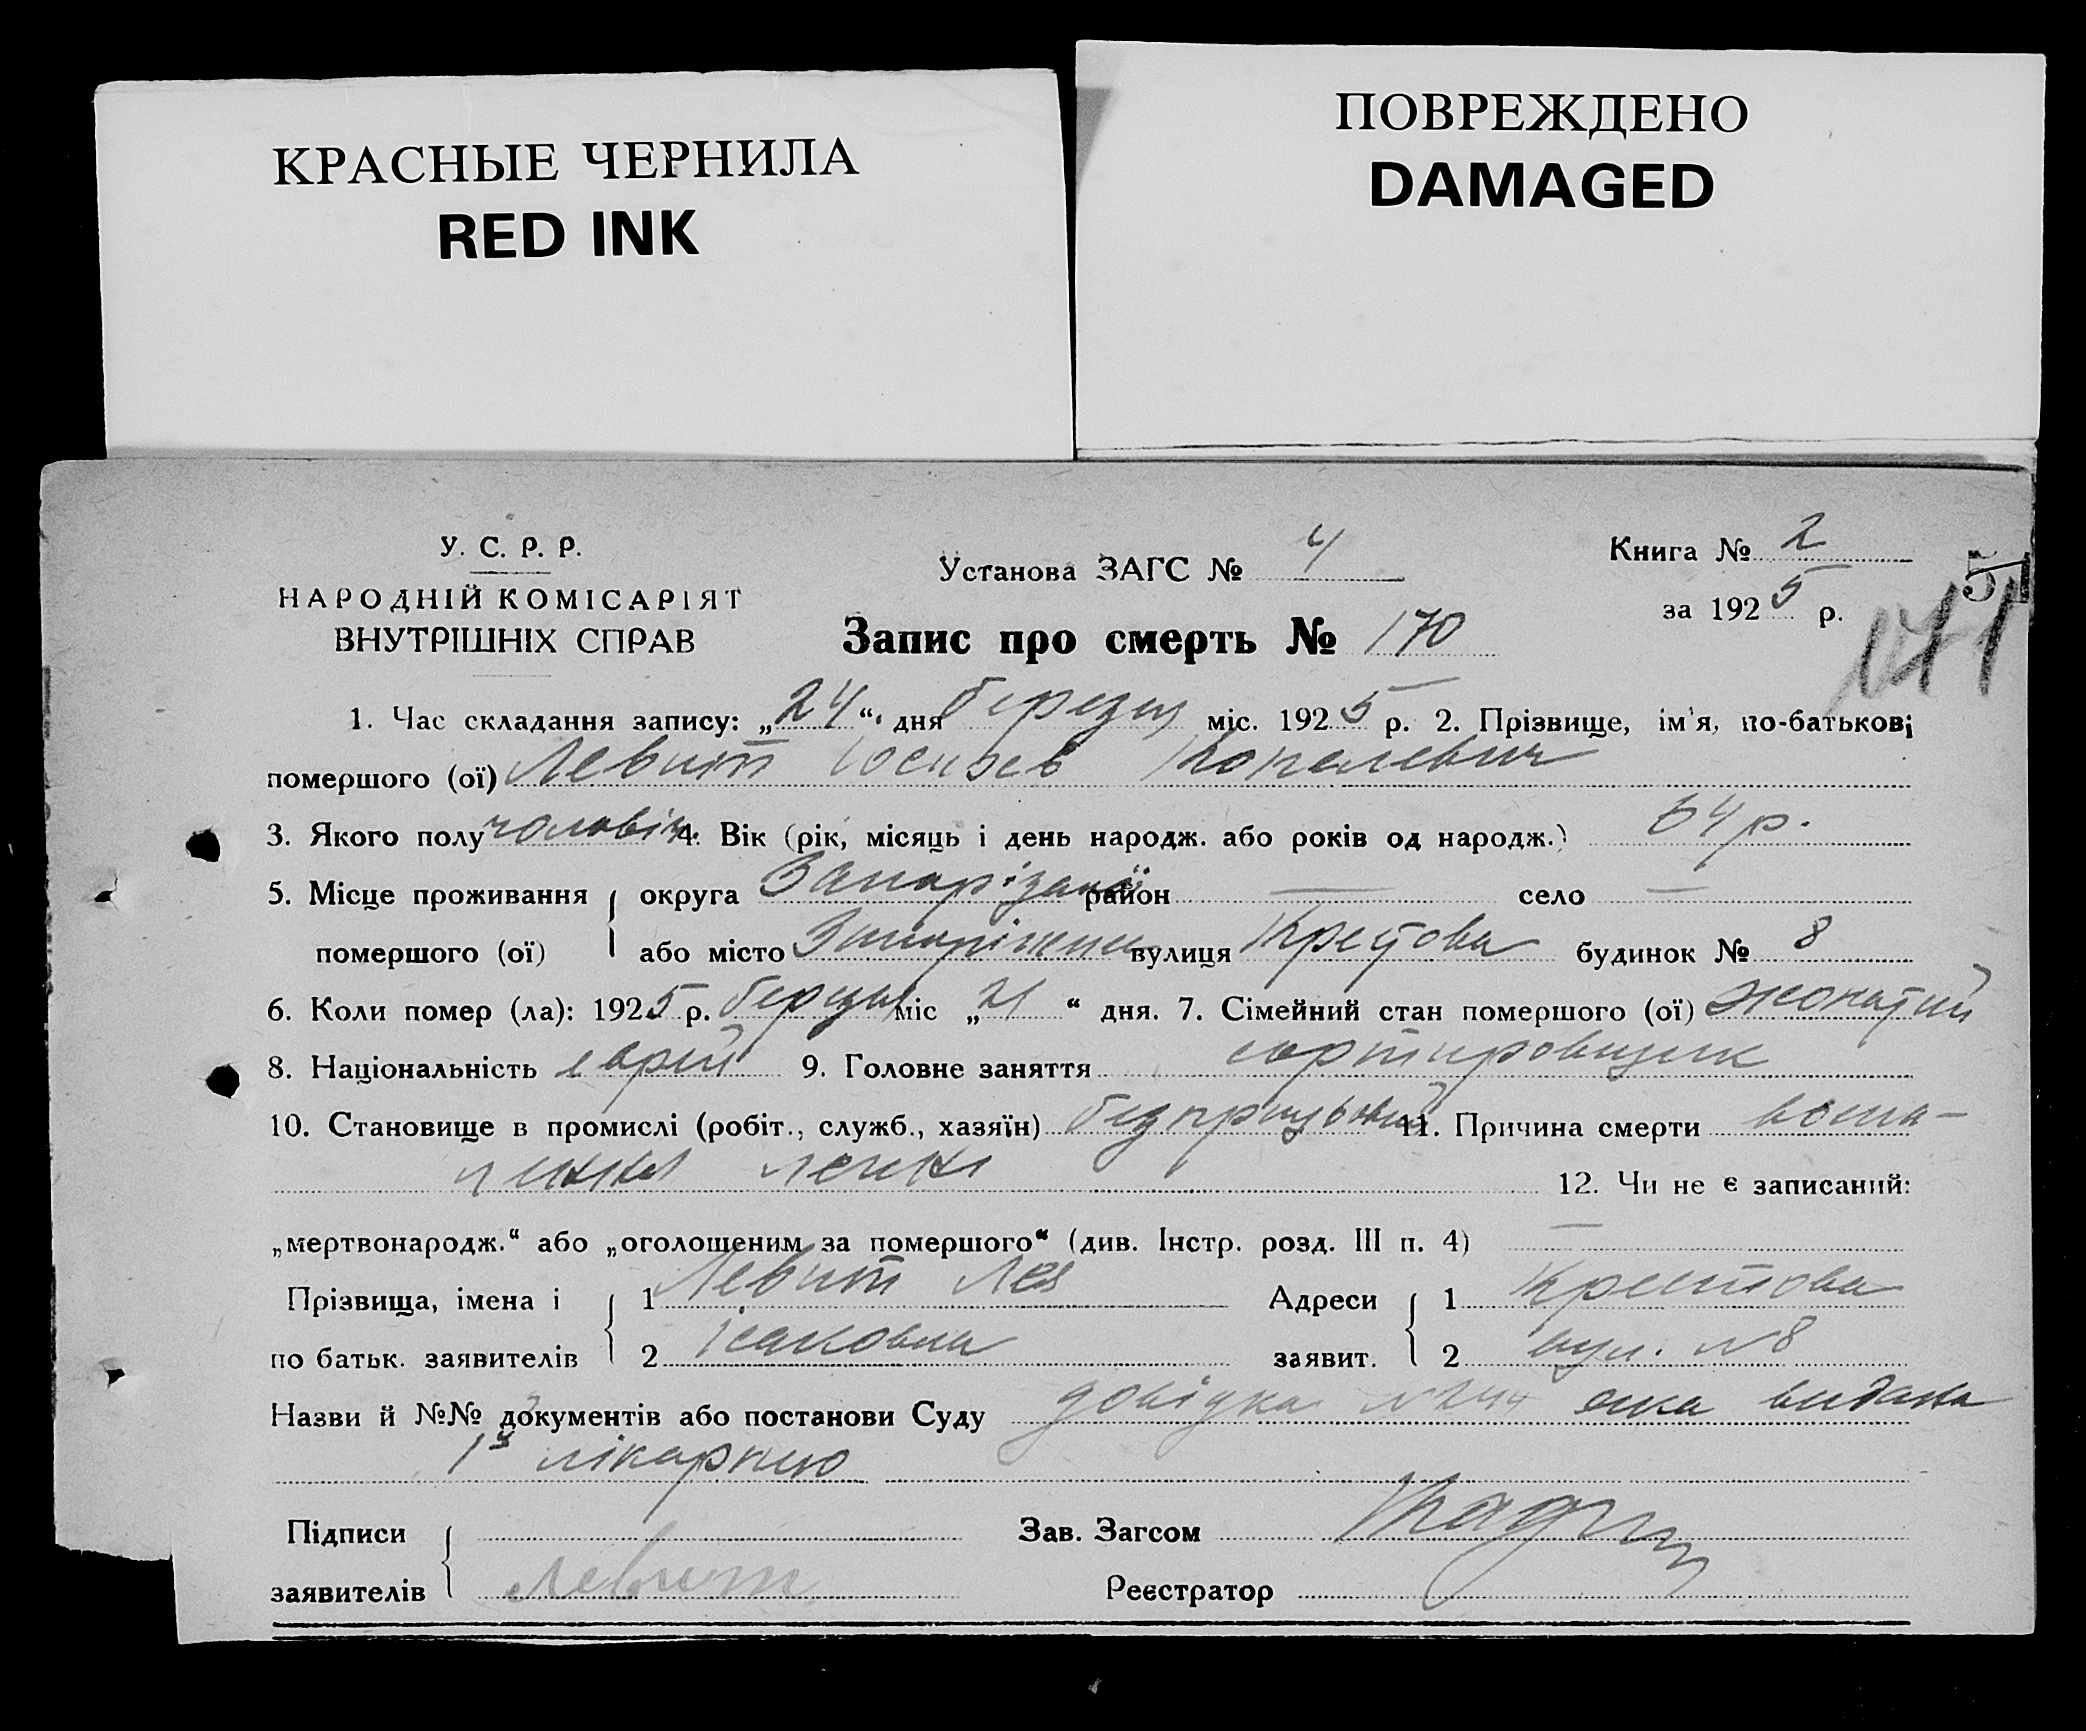 КРАСНЫЕ ЧЕРНИЛА
RED INK
ПОВРЕЖДЕНО
DAMAGED
У. С. Р. Р.
НАРОДНІЙ КОМІСАРІЯТ
ВНУТРІШНІХ СПРАВ
Установа ЗАГС № 4
Книга № 2
за 1925 р.
51
171
Запис про смерть № 170
1. Час складання запису: „24“ дня березня міс. 1925 р. 2. Прізвище, ім'я, по-батькові
помершого (ої) Левит Копелевич
3. Якого полу чоловіч. 4. Вік (рік, місяць і день народж. або років од народж.) 64 р.
5. Місце проживання округа Запорізька район — село —
помершого (ої) або місто Запоріжжя вулиця Крестова будинок № 8
6. Коли помер (ла): 1925 р. березня міс „21“ дня. 7. Сімейний стан помершого (ої) жонатий
8. Національність еврей 9. Головне заняття сортировщик
10. Становище в промислі (робіт., служб., хазяїн) 11. Причина смерти воспа-
12. Чи не є записаний:
„мертвонародж.“ або „оголошеним за помершого“ (див. Інстр. розд. III п. 4) —
Прізвища, імена і 1 Левит Лея Адреси 1 Крестова
по батьк. заявителів 2 Ісаковна заявит. 2 вул. № 8
Назви й №№ документів або постанови Суду довідка № яка видана
1й лікарнею
Підписи Зав. Загсом
заявителів Левит Реєстратор